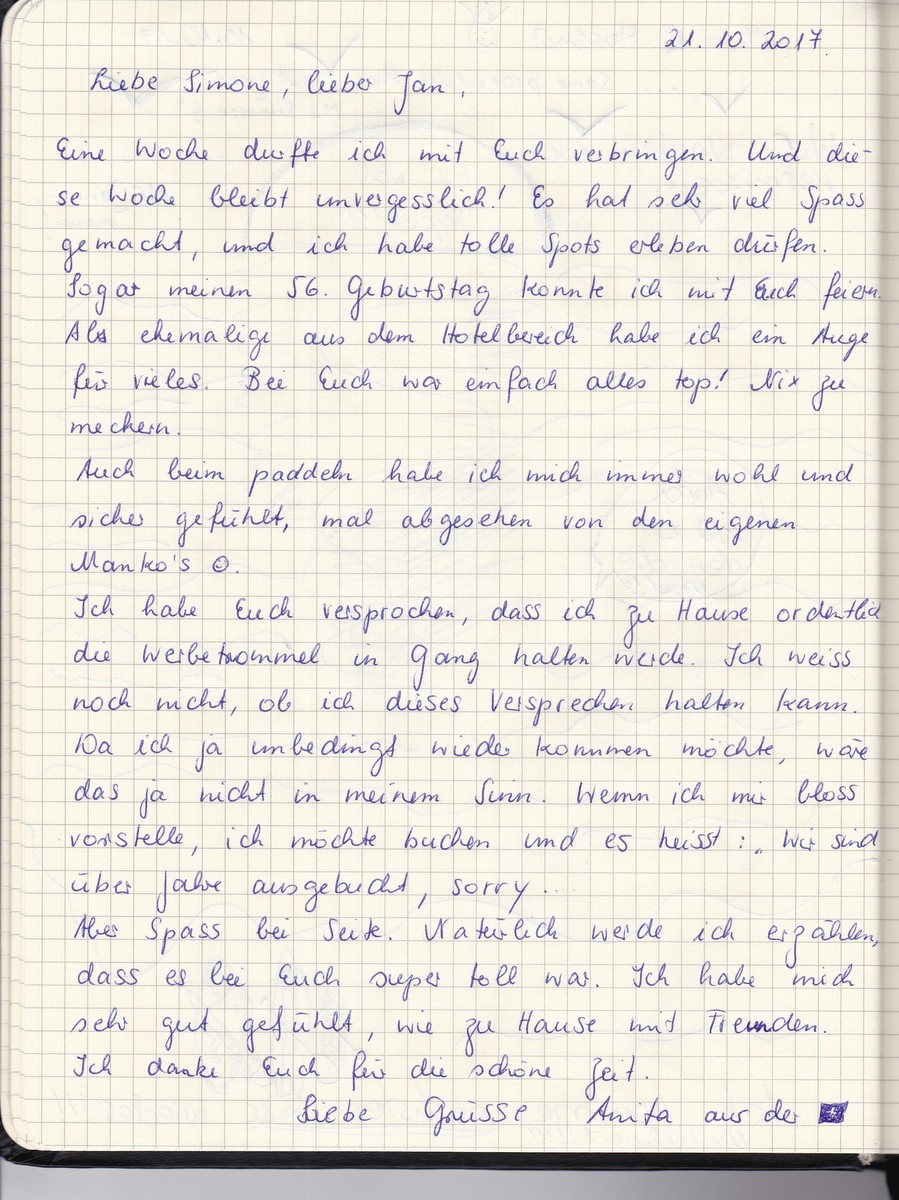 21. 10. 2017.
Liebe Simone, lieber Jan,
Eine Woche durfte ich mit Euch verbringen. Und die-
se Woche bleibt unvergesslich! Es hat sehr viel Spass
gemacht, und ich habe tolle Spots erleben dürfen.
Sogar meinen 56. Geburtstag konnte ich mit Euch feiern.
Als ehemalige aus dem Hotelbereich habe ich ein Auge
für vieles. Bei Euch war einfach alles top! Nix zu
meckern.
Auch beim paddeln habe ich mich immer wohl und
sicher gefühlt, mal abgesehen von den eigenen
Manko's ☺.
Ich habe Euch versprochen, dass ich zu Hause ordentlich
die Werbetrommel in Gang halten werde. Ich weiss
noch nicht, ob ich dieses Versprechen halten kann.
Da ich ja unbedingt wieder kommen möchte, wäre
das ja nicht in meinem Sinn. Wenn ich mir bloss
vorstelle, ich möchte buchen und es heisst: „Wir sind
über Jahre ausgebucht, sorry...
Aber Spass bei Seite. Natürlich werde ich erzählen,
dass es bei Euch super toll war. Ich habe mich
sehr gut gefühlt, wie zu Hause mit Freunden.
Ich danke Euch für die schöne Zeit.
Liebe Grüsse Anita aus der